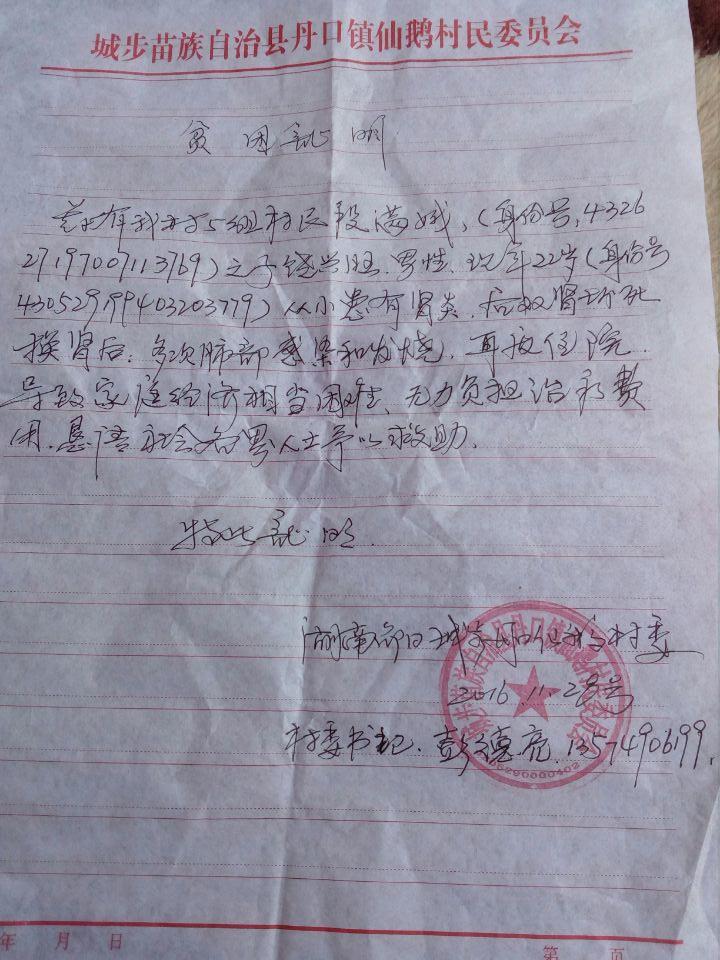 城步苗族自治县丹口镇仙鹅村民委员会
贫困证明
兹有我村5组村民段满娥,(身份号,4326
27197007113769)之子饶兴旺.男性.现年22岁(身份号
430529199403203779)从小患有肾炎.后双肾坏死
换肾后.多次肺部感染和发烧.再按住院.
导致家庭经济相当困难.无力负担治疗费
用.恳请社会各界人士予以救助.
特此证明.
湖南省 城步丹口仙鹅村委
2016.11.28号
村委书记.彭德亮.13574906199.
年 月 日
第 页